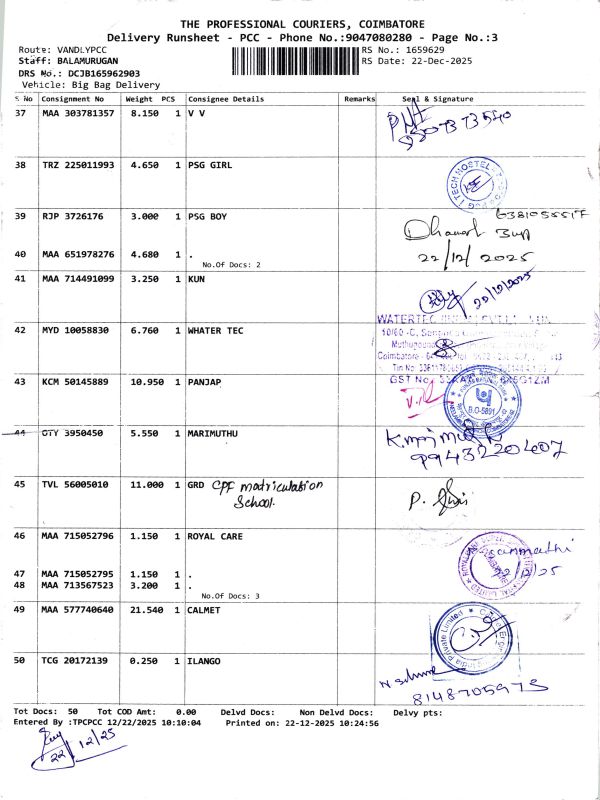 THE PROFESSIONAL COURIERS, COIMBATORE
Delivery Runsheet - PCC - Phone No.:9047080280 - Page No.:3
Route: VANDLYPCC RS No.: 1659629
Staff: BALAMURUGAN RS Date: 22-Dec-2025
DRS No.: DCJB165962903
Vehicle: Big Bag Delivery
S No Consignment No Weight PCS Consignee Details Remarks Seal & Signature
37 MAA 303781357 8.150 1 V V
38 TRZ 225011993 4.650 1 PSG GIRL
TECH HOSTEL
39 RJP 3726176 3.000 1 PSG BOY
Dhanush
40 MAA 651978276 4.680 1 . 22/12/2025
No.Of Docs: 2
41 MAA 714491099 3.250 1 KUN 22/12/2025
42 MYD 10058830 6.760 1 WHATER TEC
Coimbatore
43 KCM 50145889 10.950 1 PANJAP
GST No.
B.O-5891
44 GTY 3950450 5.550 1 MARIMUTHU
9943220407
45 TVL 56005010 11.000 1 GRD CPF matriculation
School.
46 MAA 715052796 1.150 1 ROYAL CARE
47 MAA 715052795 1.150 1 . 22/12/25
48 MAA 713567523 3.200 1 .
No.Of Docs: 3
49 MAA 577740640 21.540 1 CALMET
India Private Limited
50 TCG 20172139 0.250 1 ILANGO
8148705975
Tot Docs: 50 Tot COD Amt: 0.00 Delvd Docs: Non Delvd Docs: Delvy pts:
Entered By :TPCPCC 12/22/2025 10:10:04 Printed on: 22-12-2025 10:24:56
22/12/25